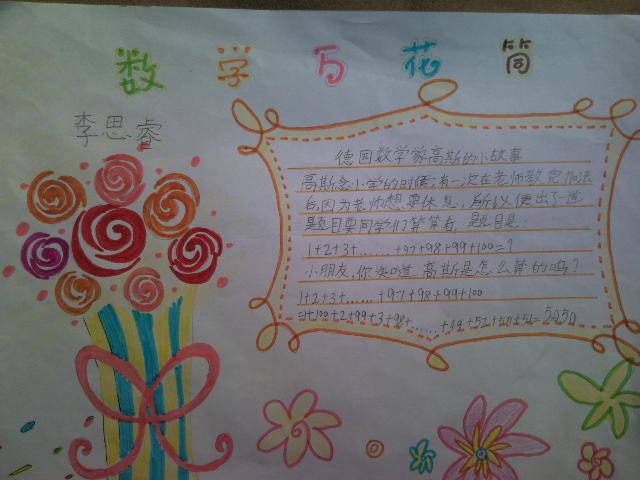 数学万花筒
李思睿
德国数学家高斯的小故事
高斯念小学的时候,有一次在老师教完加法
后,因为老师想要休息,所以便出了一道
题目要同学们算算看,题目是:
1+2+3+……+97+98+99+100=?
小朋友,你知道高斯是怎么算的吗?
1+2+3+……+97+98+99+100
=1+100+2+99+3+98+……+49+52+50+51=5050